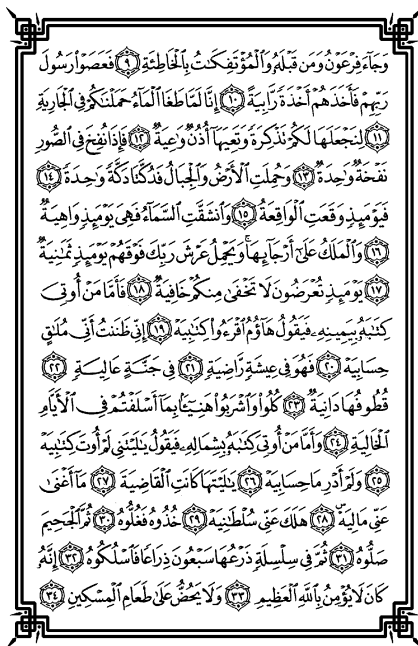 وَجَآءَ فِرْعَوْنُ وَمَن قَبْلَهُۥ وَٱلْمُؤْتَفِكَٰتُ بِٱلْخَاطِئَةِ ۝٩ فَعَصَوْا۟ رَسُولَ
رَبِّهِمْ فَأَخَذَهُمْ أَخْذَةً رَّابِيَةً ۝١٠ إِنَّا لَمَّا طَغَا ٱلْمَآءُ حَمَلْنَٰكُمْ فِى ٱلْجَارِيَةِ
۝١١ لِنَجْعَلَهَا لَكُمْ تَذْكِرَةً وَتَعِيَهَآ أُذُنٌ وَٰعِيَةٌ ۝١٢ فَإِذَا نُفِخَ فِى ٱلصُّورِ
نَفْخَةٌ وَٰحِدَةٌ ۝١٣ وَحُمِلَتِ ٱلْأَرْضُ وَٱلْجِبَالُ فَدُكَّتَا دَكَّةً وَٰحِدَةً ۝١٤
فَيَوْمَئِذٍ وَقَعَتِ ٱلْوَاقِعَةُ ۝١٥ وَٱنشَقَّتِ ٱلسَّمَآءُ فَهِىَ يَوْمَئِذٍ وَاهِيَةٌ
۝١٦ وَٱلْمَلَكُ عَلَىٰٓ أَرْجَآئِهَا ۚ وَيَحْمِلُ عَرْشَ رَبِّكَ فَوْقَهُمْ يَوْمَئِذٍ ثَمَٰنِيَةٌ
۝١٧ يَوْمَئِذٍ تُعْرَضُونَ لَا تَخْفَىٰ مِنكُمْ خَافِيَةٌ ۝١٨ فَأَمَّا مَنْ أُوتِىَ
كِتَٰبَهُۥ بِيَمِينِهِۦ فَيَقُولُ هَآؤُمُ ٱقْرَءُوا۟ كِتَٰبِيَهْ ۝١٩ إِنِّى ظَنَنتُ أَنِّى مُلَٰقٍ
حِسَابِيَهْ ۝٢٠ فَهُوَ فِى عِيشَةٍ رَّاضِيَةٍ ۝٢١ فِى جَنَّةٍ عَالِيَةٍ ۝٢٢
قُطُوفُهَا دَانِيَةٌ ۝٢٣ كُلُوا۟ وَٱشْرَبُوا۟ هَنِيٓـًٔۢا بِمَآ أَسْلَفْتُمْ فِى ٱلْأَيَّامِ
ٱلْخَالِيَةِ ۝٢٤ وَأَمَّا مَنْ أُوتِىَ كِتَٰبَهُۥ بِشِمَالِهِۦ فَيَقُولُ يَٰلَيْتَنِى لَمْ أُوتَ كِتَٰبِيَهْ
۝٢٥ وَلَمْ أَدْرِ مَا حِسَابِيَهْ ۝٢٦ يَٰلَيْتَهَا كَانَتِ ٱلْقَاضِيَةَ ۝٢٧ مَآ أَغْنَىٰ
عَنِّى مَالِيَهْ ۝٢٨ هَلَكَ عَنِّى سُلْطَٰنِيَهْ ۝٢٩ خُذُوهُ فَغُلُّوهُ ۝٣٠ ثُمَّ ٱلْجَحِيمَ
صَلُّوهُ ۝٣١ ثُمَّ فِى سِلْسِلَةٍ ذَرْعُهَا سَبْعُونَ ذِرَاعًا فَٱسْلُكُوهُ ۝٣٢ إِنَّهُۥ
كَانَ لَا يُؤْمِنُ بِٱللَّهِ ٱلْعَظِيمِ ۝٣٣ وَلَا يَحُضُّ عَلَىٰ طَعَامِ ٱلْمِسْكِينِ ۝٣٤